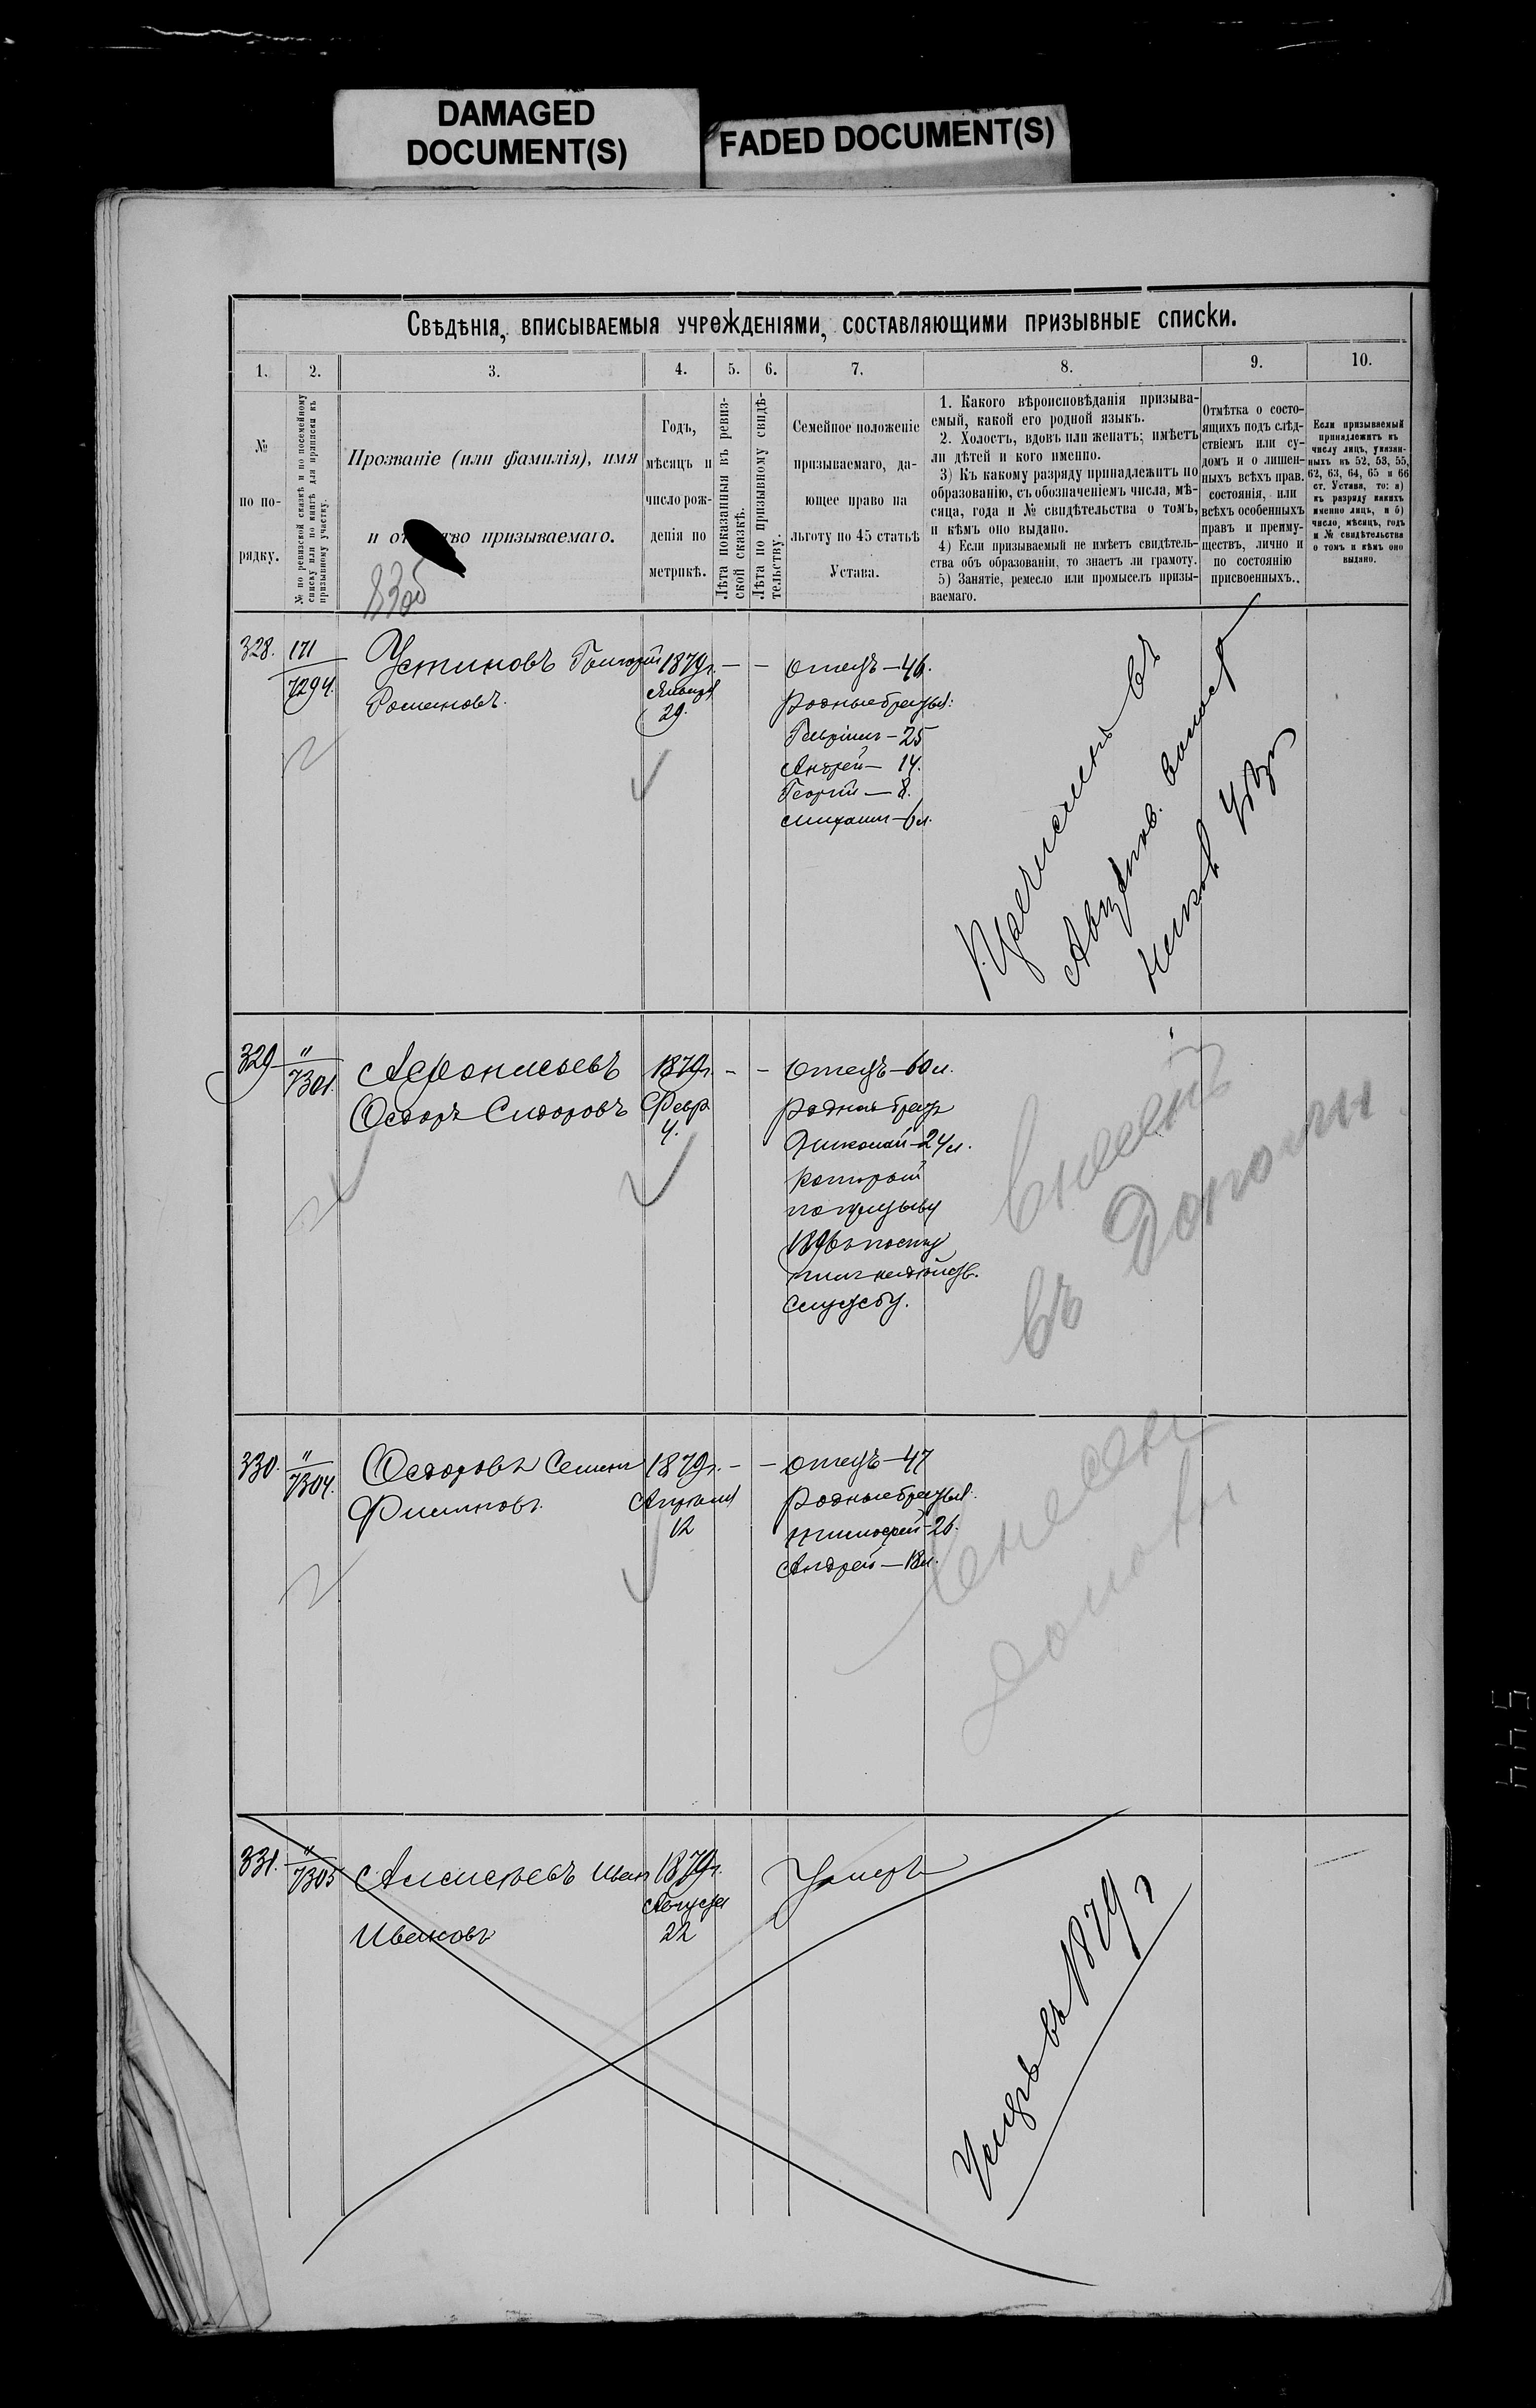 DAMAGED
DOCUMENT(S)
FADED DOCUMENT(S)
Свѣдѣнія, вписываемыя учрежденіями, составляющими призывные списки.
1. 2. 3. 4. 5. 6. 7. 8. 9. 10.
№
по по-
рядку.
№ по ревизской сказкѣ и по посемейному
списку или по книгѣ для приписки къ
призывному участку.
Прозваніе (или фамилія), имя
и от тво призываемаго.
Годъ,
мѣсяцъ и
число рож-
денія по
метрикѣ.
Лѣта показанныя въ ревиз-
ской сказкѣ.
Лѣта по призывному свидѣ-
тельству.
Семейное положеніе
призываемаго, да-
ющее право на
льготу по 45 статьѣ
Устава.
1. Какого вѣроисповѣданія призыва-
емый, какой его родной языкъ.
2. Холостъ, вдовъ или женатъ; имѣетъ
ли дѣтей и кого именно.
3) Къ какому разряду принадлежитъ по
образованію, съ обозначеніемъ числа, мѣ-
сяца, года и № свидѣтельства о томъ,
и кѣмъ оно выдано.
4) Если призываемый не имѣетъ свидѣтель-
ства объ образованіи, то знаетъ ли грамоту.
5) Занятіе, ремесло или промыселъ призы-
ваемаго.
Отмѣтка о состо-
ящихъ подъ слѣд-
ствіемъ или су-
домъ и о лишен-
ныхъ всѣхъ прав.
состоянія, или
всѣхъ особенныхъ
правъ и преиму-
ществъ, лично и
по состоянію
присвоенныхъ..
Если призываемый
принадлежитъ къ
числу лицъ, указан-
ныхъ въ 52, 53, 55,
62, 63, 64, 65 и 66
ст. Устава, то: а)
къ разряду какихъ
именно лицъ, и б)
число, мѣсяцъ, годъ
и № свидѣтельства
о томъ и кѣмъ оно
выдано.
328. 171
7294.
Устиновъ Григорій
Романовъ.
1879г.
Января
29.
— —
Отецъ — 46.
Родные братья:
Гавріилъ — 25
Андрей — 14.
Георгій — 8.
Михаилъ — 6 л.
329 "
7301.
Афонасьевъ
Ѳедоръ Сидоровъ
1879г.
Февр.
4.
- -
Отецъ — 60 л.
Родной братъ
Николай — 24 л.
который
по призыву
1896 г. посту
пилъ на дѣйств.
службу.
Внесенъ
въ Дополн
330. "
7304.
Ѳедоровъ Семенъ
Филиповъ.
1879г.
Апрѣля
12
- -
Отецъ — 47
Родные братья:
Тимофей — 26.
Андрей — 18 л.
Внесенъ
331. "
7305
Алексѣевъ Иванъ
Ивановъ
1879г.
Августа
22
Умеръ
Умеръ въ 1879 г
544